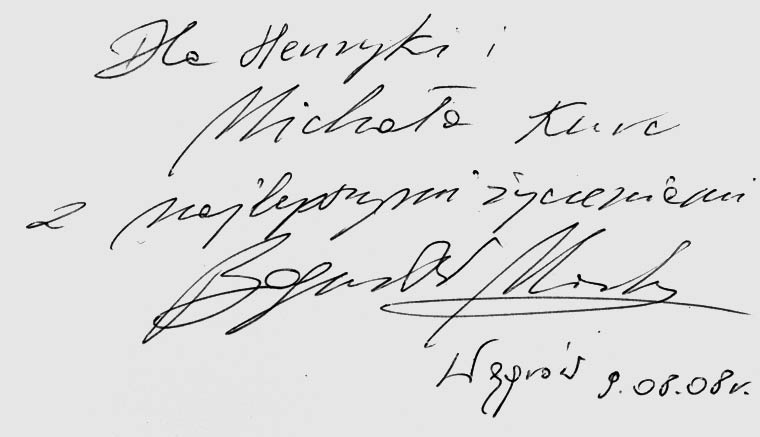 Dla Henryki i
Michała Kurc
z najlepszymi życzeniami
Bogusław
Węgrów 9.08.08r.